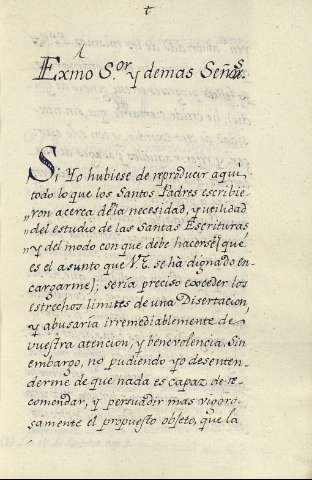 t
Exmo S.or y demas Señ.s
Si Yo hubiese de reproducir aqui
todo lo que los Santos Padres escribie
„ron acerca de la necesidad, y utilidad
„del estudio de las Santas Escrituras
„y del modo con que debe hacerse [que
es el asunto que V.E. se ha dignado en-
cargarme]; sería preciso exceder los
estrechos limites de una Disertacion,
y abusaría irremediablemente de
vuestra atencion, y benevolencia. Sin
embargo, no pudiendo yo desenten-
derme de que nada es capaz de re-
comendar, y persuadir mas vigoro-
samente el propuesto objeto, que la